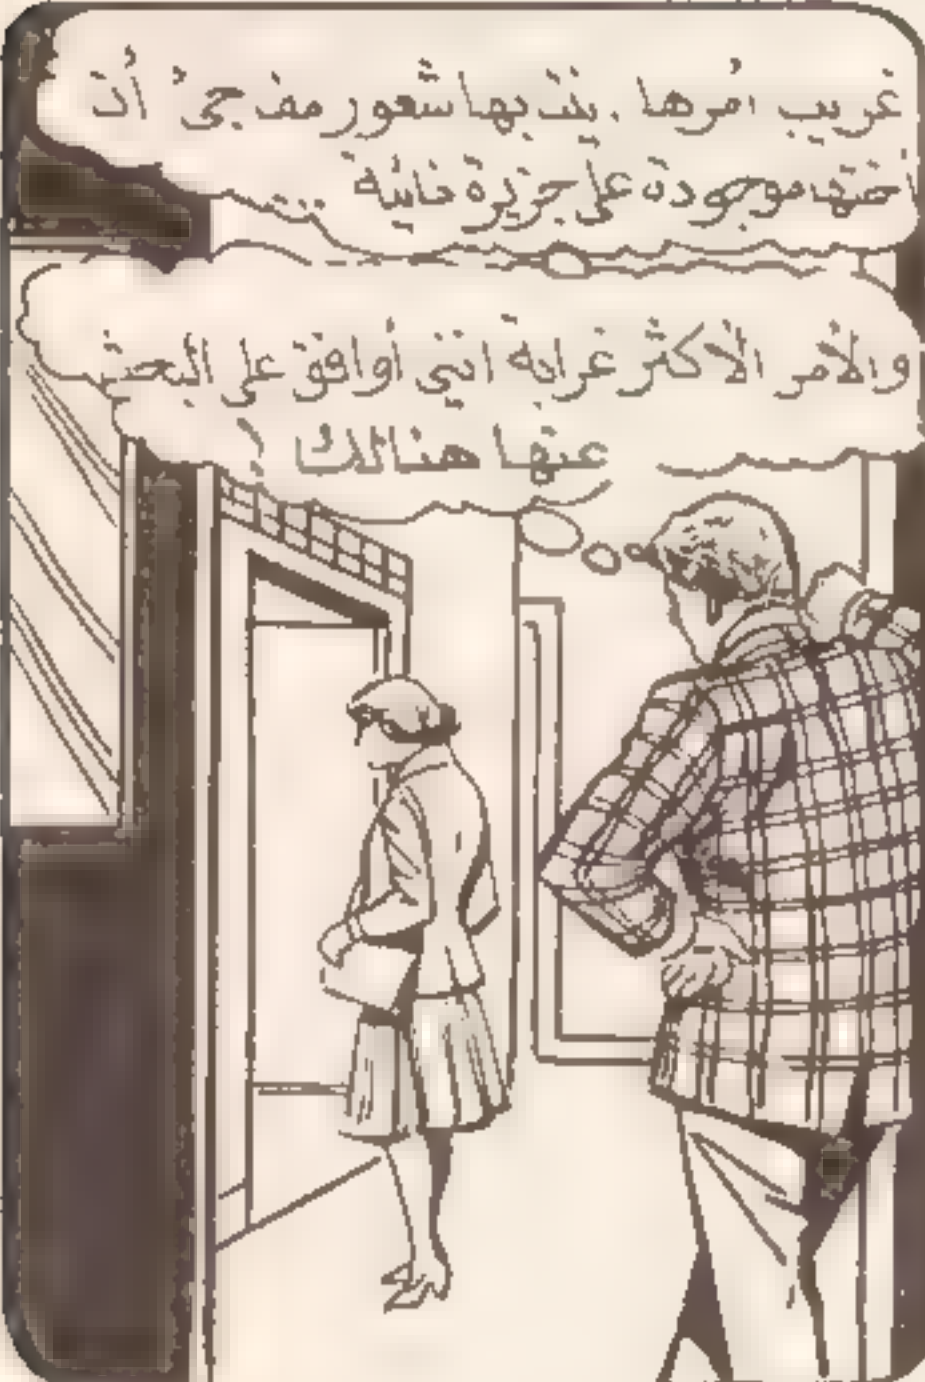 غريب أمرها . ينتابها شعور مفاجئ أن
أختها موجودة على جزيرة نائية ...
والأمر الأكثر غرابة انني أوافق على البحث
عنها هنالك ؟